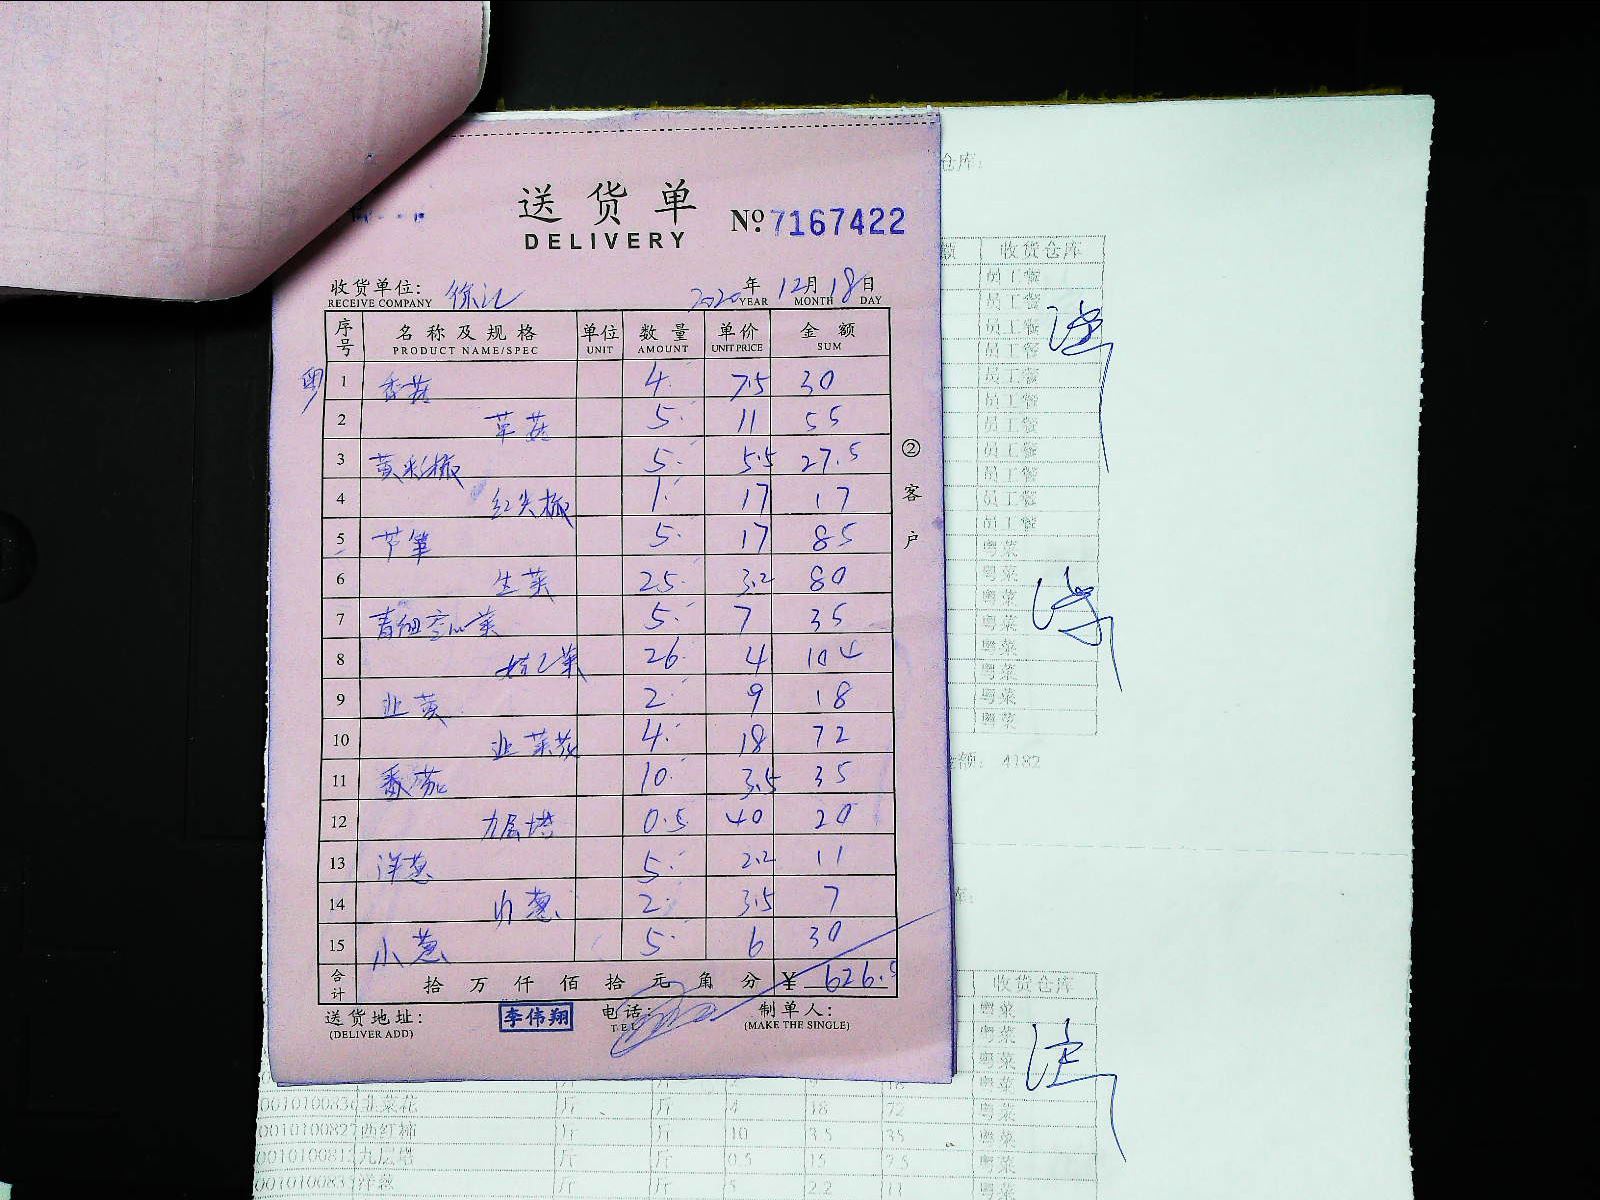 送货单
DELIVERY
№ 7167422
收货单位: 徐汇 2020年12月18日
RECEIVE COMPANY YEAR MONTH DAY
序号 名称及规格 单位 数量 单价 金额
PRODUCT NAME/SPEC UNIT AMOUNT UNIT PRICE SUM
粤 1 香菇 4 7.5 30
2 草菇 5 11 55
3 黄彩椒 5 5.5 27.5
4 红尖椒 1 17 17
5 芦笋 5 17 85
6 生菜 25 3.2 80
7 青细空心菜 5 7 35
8 娃娃菜 26 4 104
9 韭黄 2 9 18
10 韭菜花 4 18 72
11 番茄 10 3.5 35
12 九层塔 0.5 40 20
13 洋葱 5 2.2 11
14 葱 2 3.5 7
15 小葱 5 6 30
合计 拾万仟佰拾元角分 ¥ 626.5
送货地址: 李伟翔 电话: 制单人:
(DELIVER ADD) TEL (MAKE THE SINGLE)
② 客户
仓库:
额 收货仓库
员工餐
员工餐
员工餐
员工餐
员工餐
员工餐
员工餐
员工餐
员工餐
员工餐
员工餐
粤菜
粤菜
粤菜
粤菜
粤菜
粤菜
粤菜
粤菜
金额: 4182
库:
收货仓库
粤菜
粤菜
粤菜
粤菜
韭菜花 斤 斤 4 18 72 粤菜
西红柿 斤 斤 10 3.5 35 粤菜
九层塔 斤 斤 0.5 15 7.5 粤菜
洋葱 斤 斤 5 2.2 11 粤菜